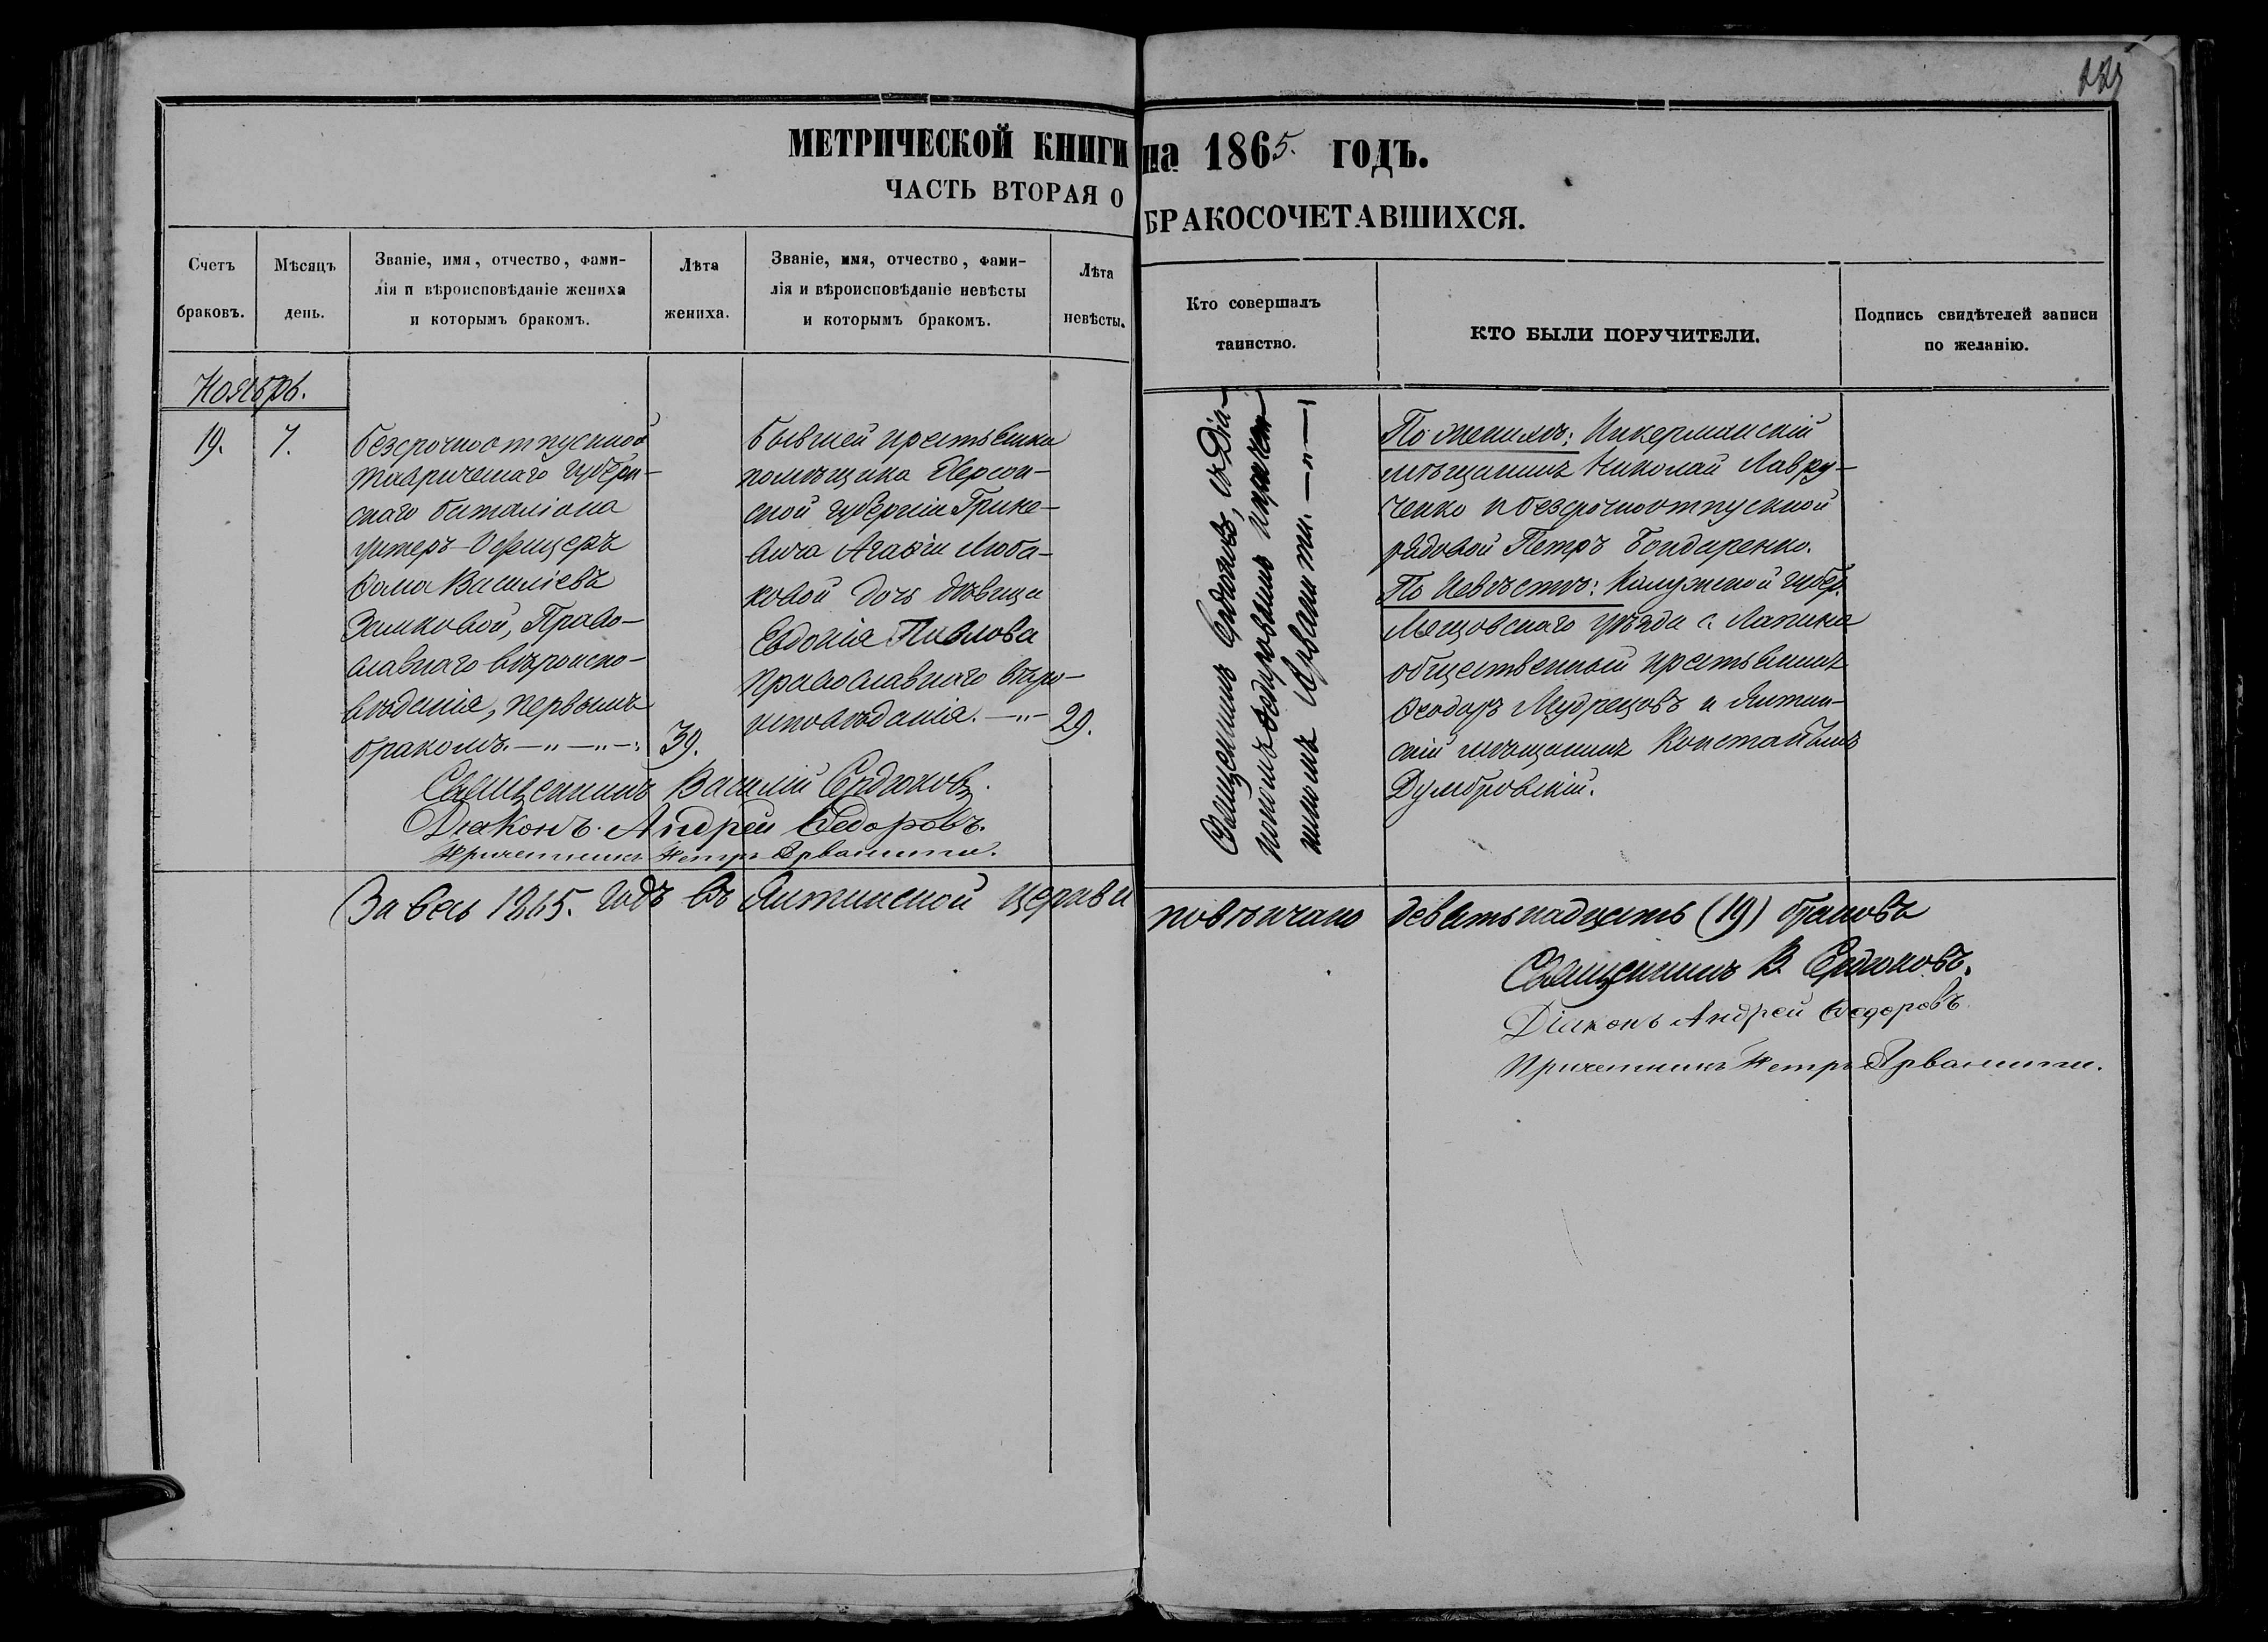 МЕТРИЧЕСКОЙ КНИГИ на 1865. ГОДЪ.
ЧАСТЬ ВТОРАЯ О БРАКОСОЧЕТАВШИХСЯ.
Счетъ браковъ.
Мѣсяцъ день.
Званіе, имя, отчество, фами-
лія и вѣроисповѣданіе жениха
и которымъ бракомъ.
Лѣта
жениха.
Званіе, имя, отчество, фами-
лія и вѣроисповѣданіе невѣсты
и которымъ бракомъ.
Лѣта
невѣсты.
Кто совершалъ
таинство.
КТО БЫЛИ ПОРУЧИТЕЛИ.
Подпись свидѣтелей записи
по желанію.
Ноябрь.
19. 7.
безсрочноотпускной
Таврическаго Губерн-
скаго баталіона
унтеръ-Офицеръ
Ѳома Василіевъ
Православнаго вѣроиспо-
вѣданія, первымъ
бракомъ. —„—„—
39.
бывшей крестьянки
помѣщика Херсон-
ской губерніи Грике-
вича Агафіи Люба-
ковой дочь дѣвица
Евдокія Павлова
православнаго вѣро-
исповѣданія. —„—
29.
Священникъ Сердюковъ, съ Діа-
кономъ Ѳедоровымъ и причет-
никомъ Арванити. —„—
По женихѣ: Инкерманскій
мѣщанинъ Николай Лавру-
ченко и безсрочноотпускной
рядовой Петръ Бондаренко.
По Невѣстѣ: Калужской губер.
Мещовскаго уѣзда с. Лапина
общественный крестьянинъ
Ѳеодоръ Мудрецовъ и Ялтин-
скій мѣщанинъ Константинъ
Думбровскій.
Священникъ Василій Сердюковъ.
Діаконъ Андрей Ѳедоровъ.
Причетникъ Петръ Арванити.
За весь 1865. годъ въ Ялтинской церкви повѣнчано девятьнадцать (19) браковъ
Священникъ В. Сердюковъ.
Діаконъ Андрей Ѳедоровъ
Причетникъ Петръ Арванити.